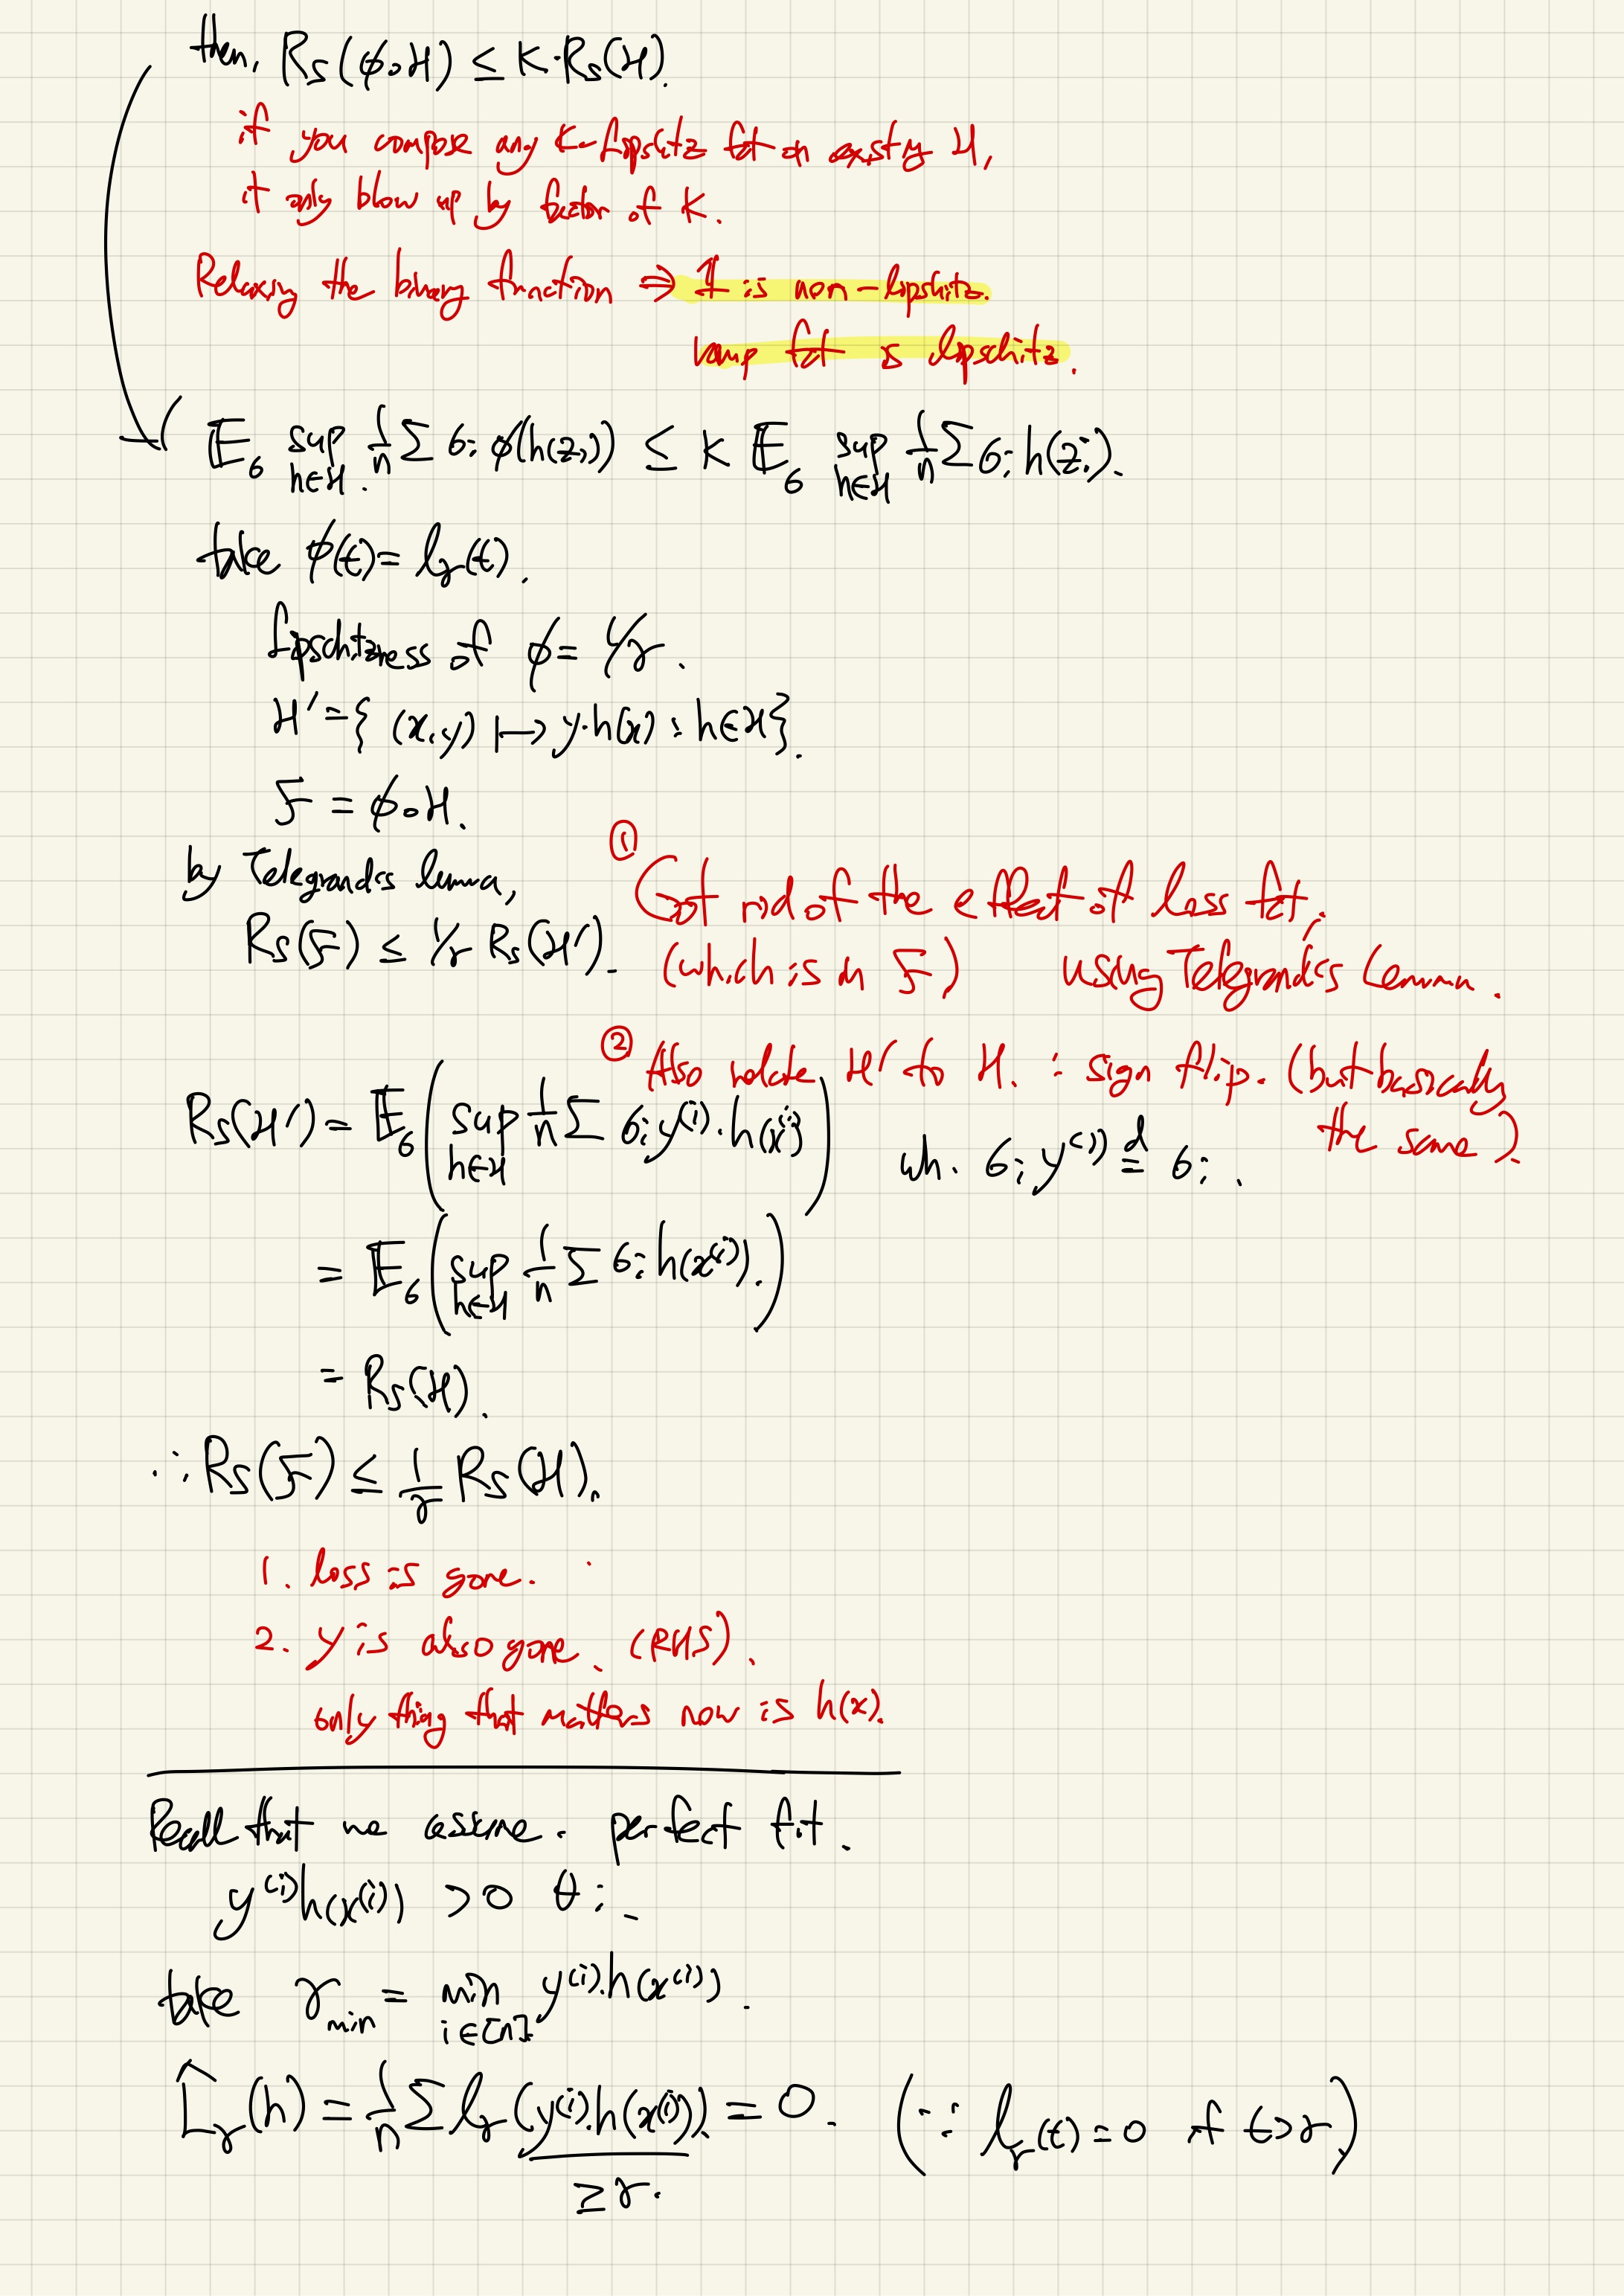 then, R_S(φ∘H) ≤ K·R_S(H).
if you compose any K-Lipschitz fct on existing H,
it only blow up by factor of K.
Relaxing the binary function ⇒ 𝟙 is non-lipshitz.
ramp fct is lipschitz.
𝔼_σ sup_{h∈H} 1/n Σ σ_i φ(h(z_i)) ≤ K 𝔼_σ sup_{h∈H} 1/n Σ σ_i h(z_i).
take φ(t) = l_γ(t).
Lipschitzness of φ = 1/γ.
H' = { (x,y) ↦ y·h(x) : h∈H}.
F = φ∘H.
by Telegrand's lemma,
R_S(F) ≤ 1/γ R_S(H').
① Got rid of the effect of loss fct,
(which is in F) using Telegrand's Lemma.
② Also relate H' to H. : sign flip. (but basically
the same)
R_S(H') = 𝔼_σ ( sup_{h∈H} 1/n Σ σ_i y^(i)·h(x^(i)) ) wh. σ_i y^(i) =^d σ_i.
= 𝔼_σ ( sup_{h∈H} 1/n Σ σ_i h(x^(i)). )
= R_S(H).
∴ R_S(F) ≤ 1/γ R_S(H).
1. loss is gone.
2. y is also gone. (RHS).
only thing that matters now is h(x).
Recall that we assume. perfect fit.
y^(i)h(x^(i)) > 0 ∀i.
take γ_min = min_{i∈[n]} y^(i)·h(x^(i)).
L̂_γ(h) = 1/n Σ l_γ(y^(i)·h(x^(i))) = 0. (∵ l_γ(t) = 0 if t > γ)
≥ γ.